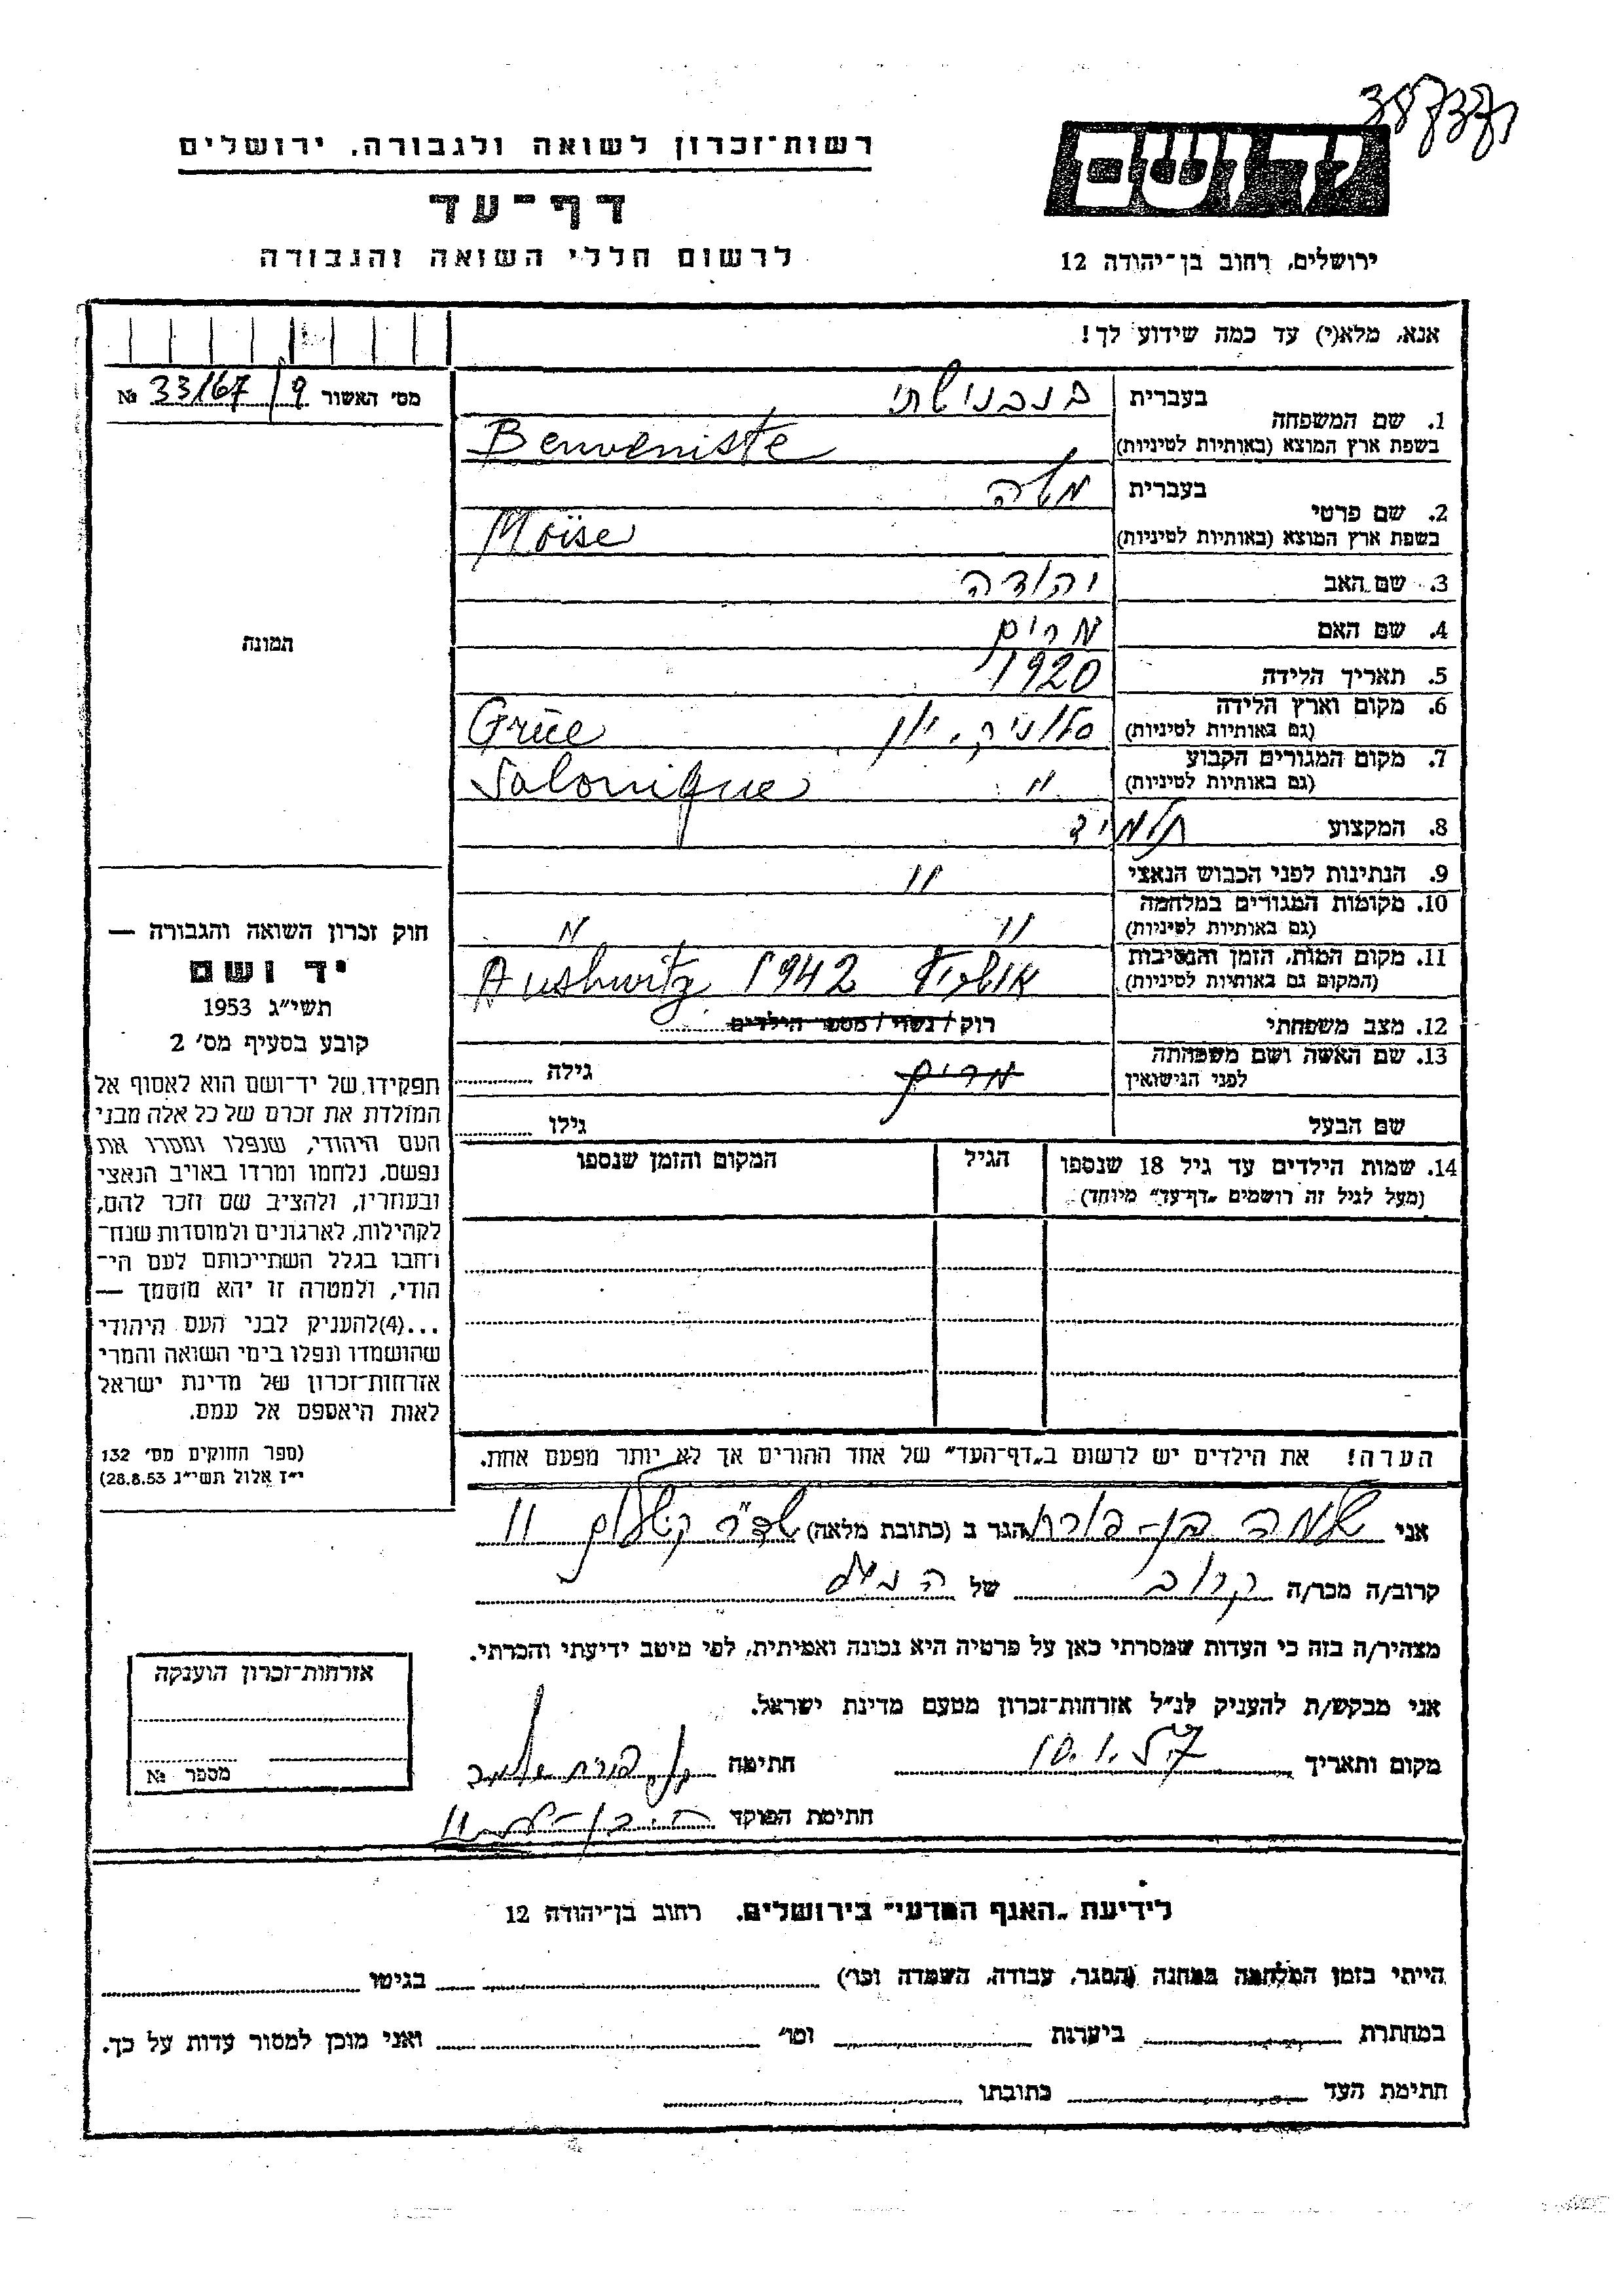 יד ושם
ירושלים, רחוב בן־יהודה 12
רשות־זכרון לשואה ולגבורה, ירושלים
דף־עד
לרשום חללי השואה והגבורה
אנא, מלא(י) עד כמה שידוע לך!
מס' האשור 33/67/9 №
1. שם המשפחה
בעברית בנבנישתי
בשפת ארץ המוצא (באותיות לטיניות) Benveniste
2. שם פרטי
בעברית משה
בשפת ארץ המוצא (באותיות לטיניות) Moïse
3. שם האב יהודה
4. שם האם מרים
5. תאריך הלידה 1920
6. מקום וארץ הלידה סלוניק, יון Grèce
(גם באותיות לטיניות)
7. מקום המגורים הקבוע " Salonique
(גם באותיות לטיניות)
8. המקצוע תלמיד
9. הנתינות לפני הכבוש הנאצי "
10. מקומות המגורים במלחמה " "
(גם באותיות לטיניות)
11. מקום המות, הזמן והנסיבות אושויץ 1942 Aushwitz
(המקום גם באותיות לטיניות)
12. מצב משפחתי רוק / נשוי / מספר הילדים
13. שם האשה ושם משפחתה מרים גילה
לפני הנישואין
שם הבעל גילו
14. שמות הילדים עד גיל 18 שנספו הגיל המקום והזמן שנספו
(מעל לגיל זה רושמים „דף־עד" מיוחד)
הערה! את הילדים יש לרשום ב„דף־העד" של אחד ההורים אך לא יותר מפעם אחת.
התמונה
חוק זכרון השואה והגבורה —
יד ושם
תשי"ג 1953
קובע בסעיף מס' 2
תפקידו של יד־ושם הוא לאסוף אל
המולדת את זכרם של כל אלה מבני
העם היהודי, שנפלו ומסרו את
נפשם, נלחמו ומרדו באויב הנאצי
ובעוזריו, ולהציב שם וזכר להם,
לקהילות, לארגונים ולמוסדות שנח־
רבו בגלל השתייכותם לעם הי־
הודי, ולמטרה זו יהא מוסמך —
...(4)להעניק לבני העם היהודי
שהושמדו ונפלו בימי השואה והמרי
אזרחות־זכרון של מדינת ישראל
לאות היאספם אל עמם.
(ספר החוקים מס' 132
י"ז אלול תשי"ג 28.8.53)
אני שלמה בן-פורת הגר ב (כתובת מלאה) 11
קרוב/ה מכר/ה קרוב של הנ"ל
מצהיר/ה בזה כי העדות שמסרתי כאן על פרטיה היא נכונה ואמיתית, לפי מיטב ידיעתי והכרתי.
אני מבקש/ת להעניק לנ"ל אזרחות־זכרון מטעם מדינת ישראל.
מקום ותאריך 10.1.57 חתימה בן פורת שלמה
חתימת הפוקד
אזרחות־זכרון הוענקה
מספר №
לידיעת „האגף המדעי" בירושלים, רחוב בן־יהודה 12
הייתי בזמן המלחמה במחנה (הסגר, עבודה, השמדה וכו') בגיטו
במחתרת ביערות וכו' ואני מוכן למסור עדות על כך.
חתימת העד כתובתו